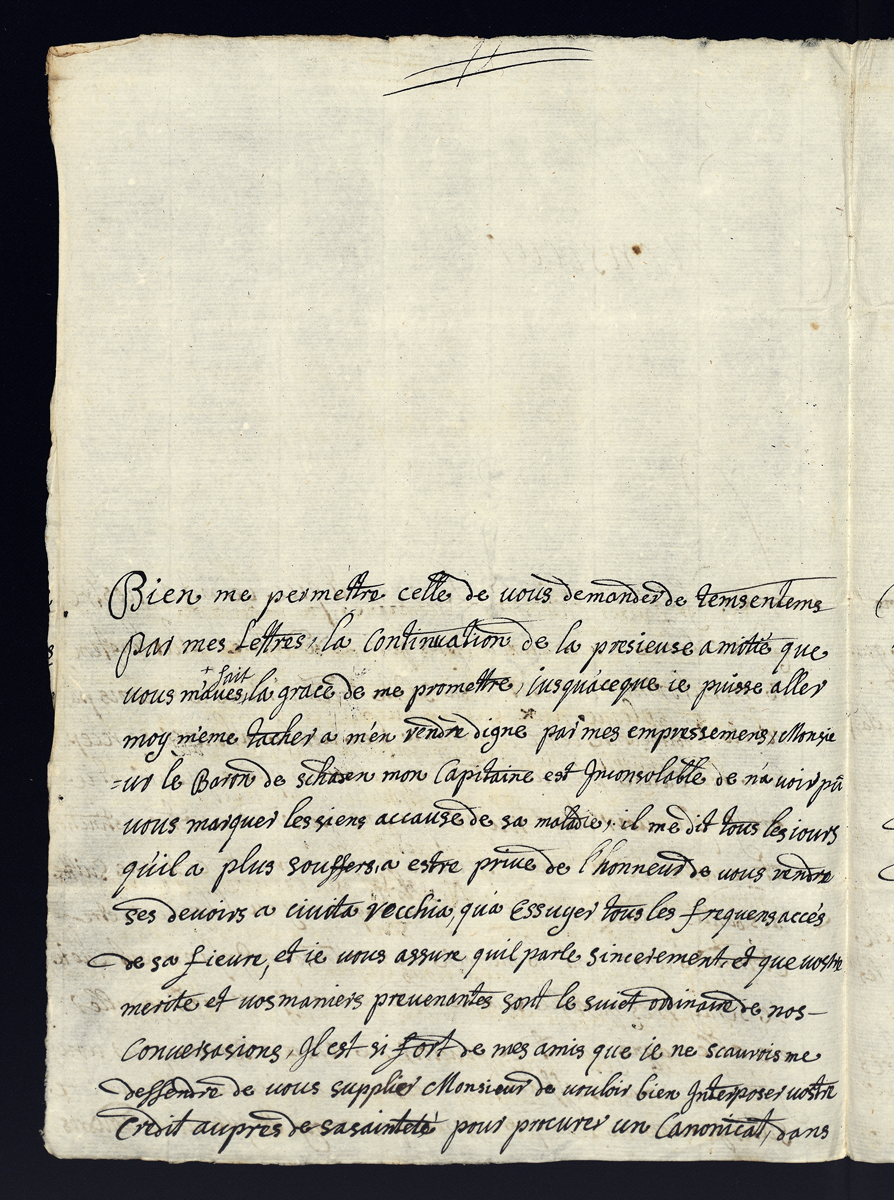 Bien me permettre celle de vous demander de temsentems
par mes Lettres, la Continuation de la presieuse amotié que
fait
vous m'aves, la grace de me promettre, jusqu'aceque ie puisse aller
moy m'eme tacher a m'en rendre digne par mes empressemens, Monsie
=ur le Baron de schaen mon Capitaine est Inconsolable de n'avoir pû
vous marquer les siens accause de sa maladie, il me dit tous les jours
qu'il a plus souffers, a estre prive de l'honneur de vous rendre
ses devoirs a civita vecchia, qu'a Essuyer tous les frequens accés
de sa fievre, et ie vous assure qu'il parle sincerement, et que vostre
merite et vos maniers prevenantes sont le suiet ordinaire de nos-
Conversasions, Il est si fort de mes amis que ie ne scaurois me
deffendre de vous supplier Monsieur de vouloir bien Interposer vostre
Credit aupres de sa sainteté pour procurer un Canonicat, dans